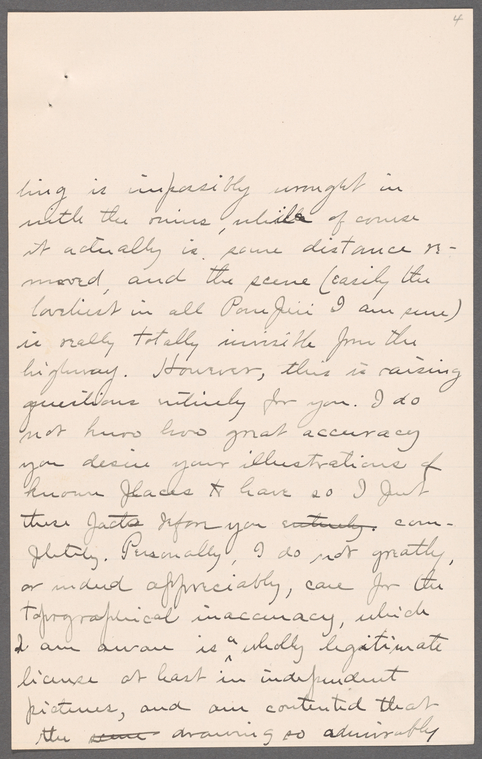 4
ting is impossibly wrought in
with the ruins, while of course
it actually is some distance re-
moved, and the scene (easily the
loveliest in all Pompeii I am sure)
is really totally invisible from the
highway. However, this is raising
questions entirely for you. I do
not know how great accuracy
you desire your illustrations of
known places to have so I put
these facts before you entirely. com-
pletely. Personally, I do not greatly,
or indeed appreciably, care for the
topographical inaccuracy, which
I am aware is a wholly legitimate
license at least in independent
pictures, and am contented that
the same drawing so admirably